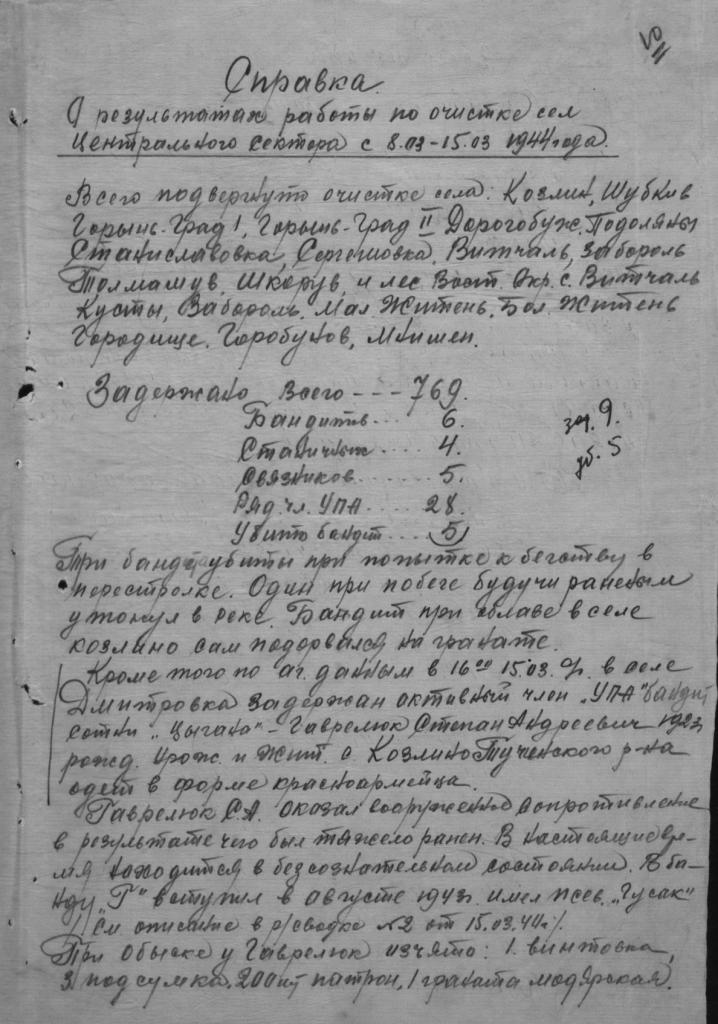 Справка
О результатах работы по очистке сел
Центрального сектора с 8.03-15.03 1944 года.
Всего подвергнуто очистке села: Козлин, Шубков
Горынь-Град I, Горынь-Град II Дорогобуж, Подоляны
Станиславовка, Сергеювка, Витчаль, Забороль
Толмашув, Шкорув, и лес Вост. Окр. с. Витчаль
Кусты, Забороль, Мал Житень, Бол. Житень
Городище, Горобухов, Мнишен.
Задержано всего --- 769.
Бандитов ... 6.
Станичных .... 4.
Связников ..... 5.
Ряд. чл. УПА .... 28.
Убито бандит .... 5
зад. 9.
уб. 5
Три бандита убиты при попытке к бегству в
перестрелке. Один при побеге будучи раненым
утонул в реке. Бандит при облаве в селе
козлино сам подорвался на гранате.
Кроме того по аг. данным в 16 00 15.03. в селе
Дмитровка задержан активный член "УПА" бандит
сотни "Цыгана" - Гаврелюк Степан Андреевич 1923
рожд. урож. и жит. с. Козлино Тученского р-на
одет в форме красноармейца.
Гаврелюк С.А. оказал вооруженное сопротивление
в результате чего был тяжело ранен. В настоящие вре-
мя находится в безсознательном состоянии. В ба-
нду "Г" вступил в августе 1943г. имел псев. "Гусак"
/См описание в р/сводке №2 от 15.03.44г/.
При обыске у Гаврелюк изъято: 1. винтовка,
3 подсумка, 200 шт патрон, 1 граната мадярская.